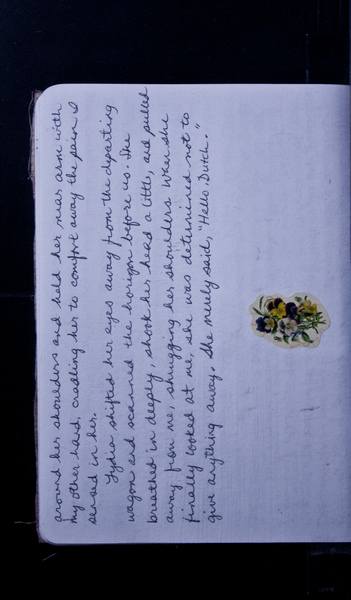 around her shoulders and held her near arm with
my other hand, cradling her to comfort away the pain I
sensed in her.
Lydia shifted her eyes away from the departing
wagon and scanned the horizon before us. She
breathed in deeply, shook her head a little, and pulled
away from me, shrugging her shoulders. When she
finally looked at me, she was determined not to
give anything away. She merely said, "Hello, Dutch."